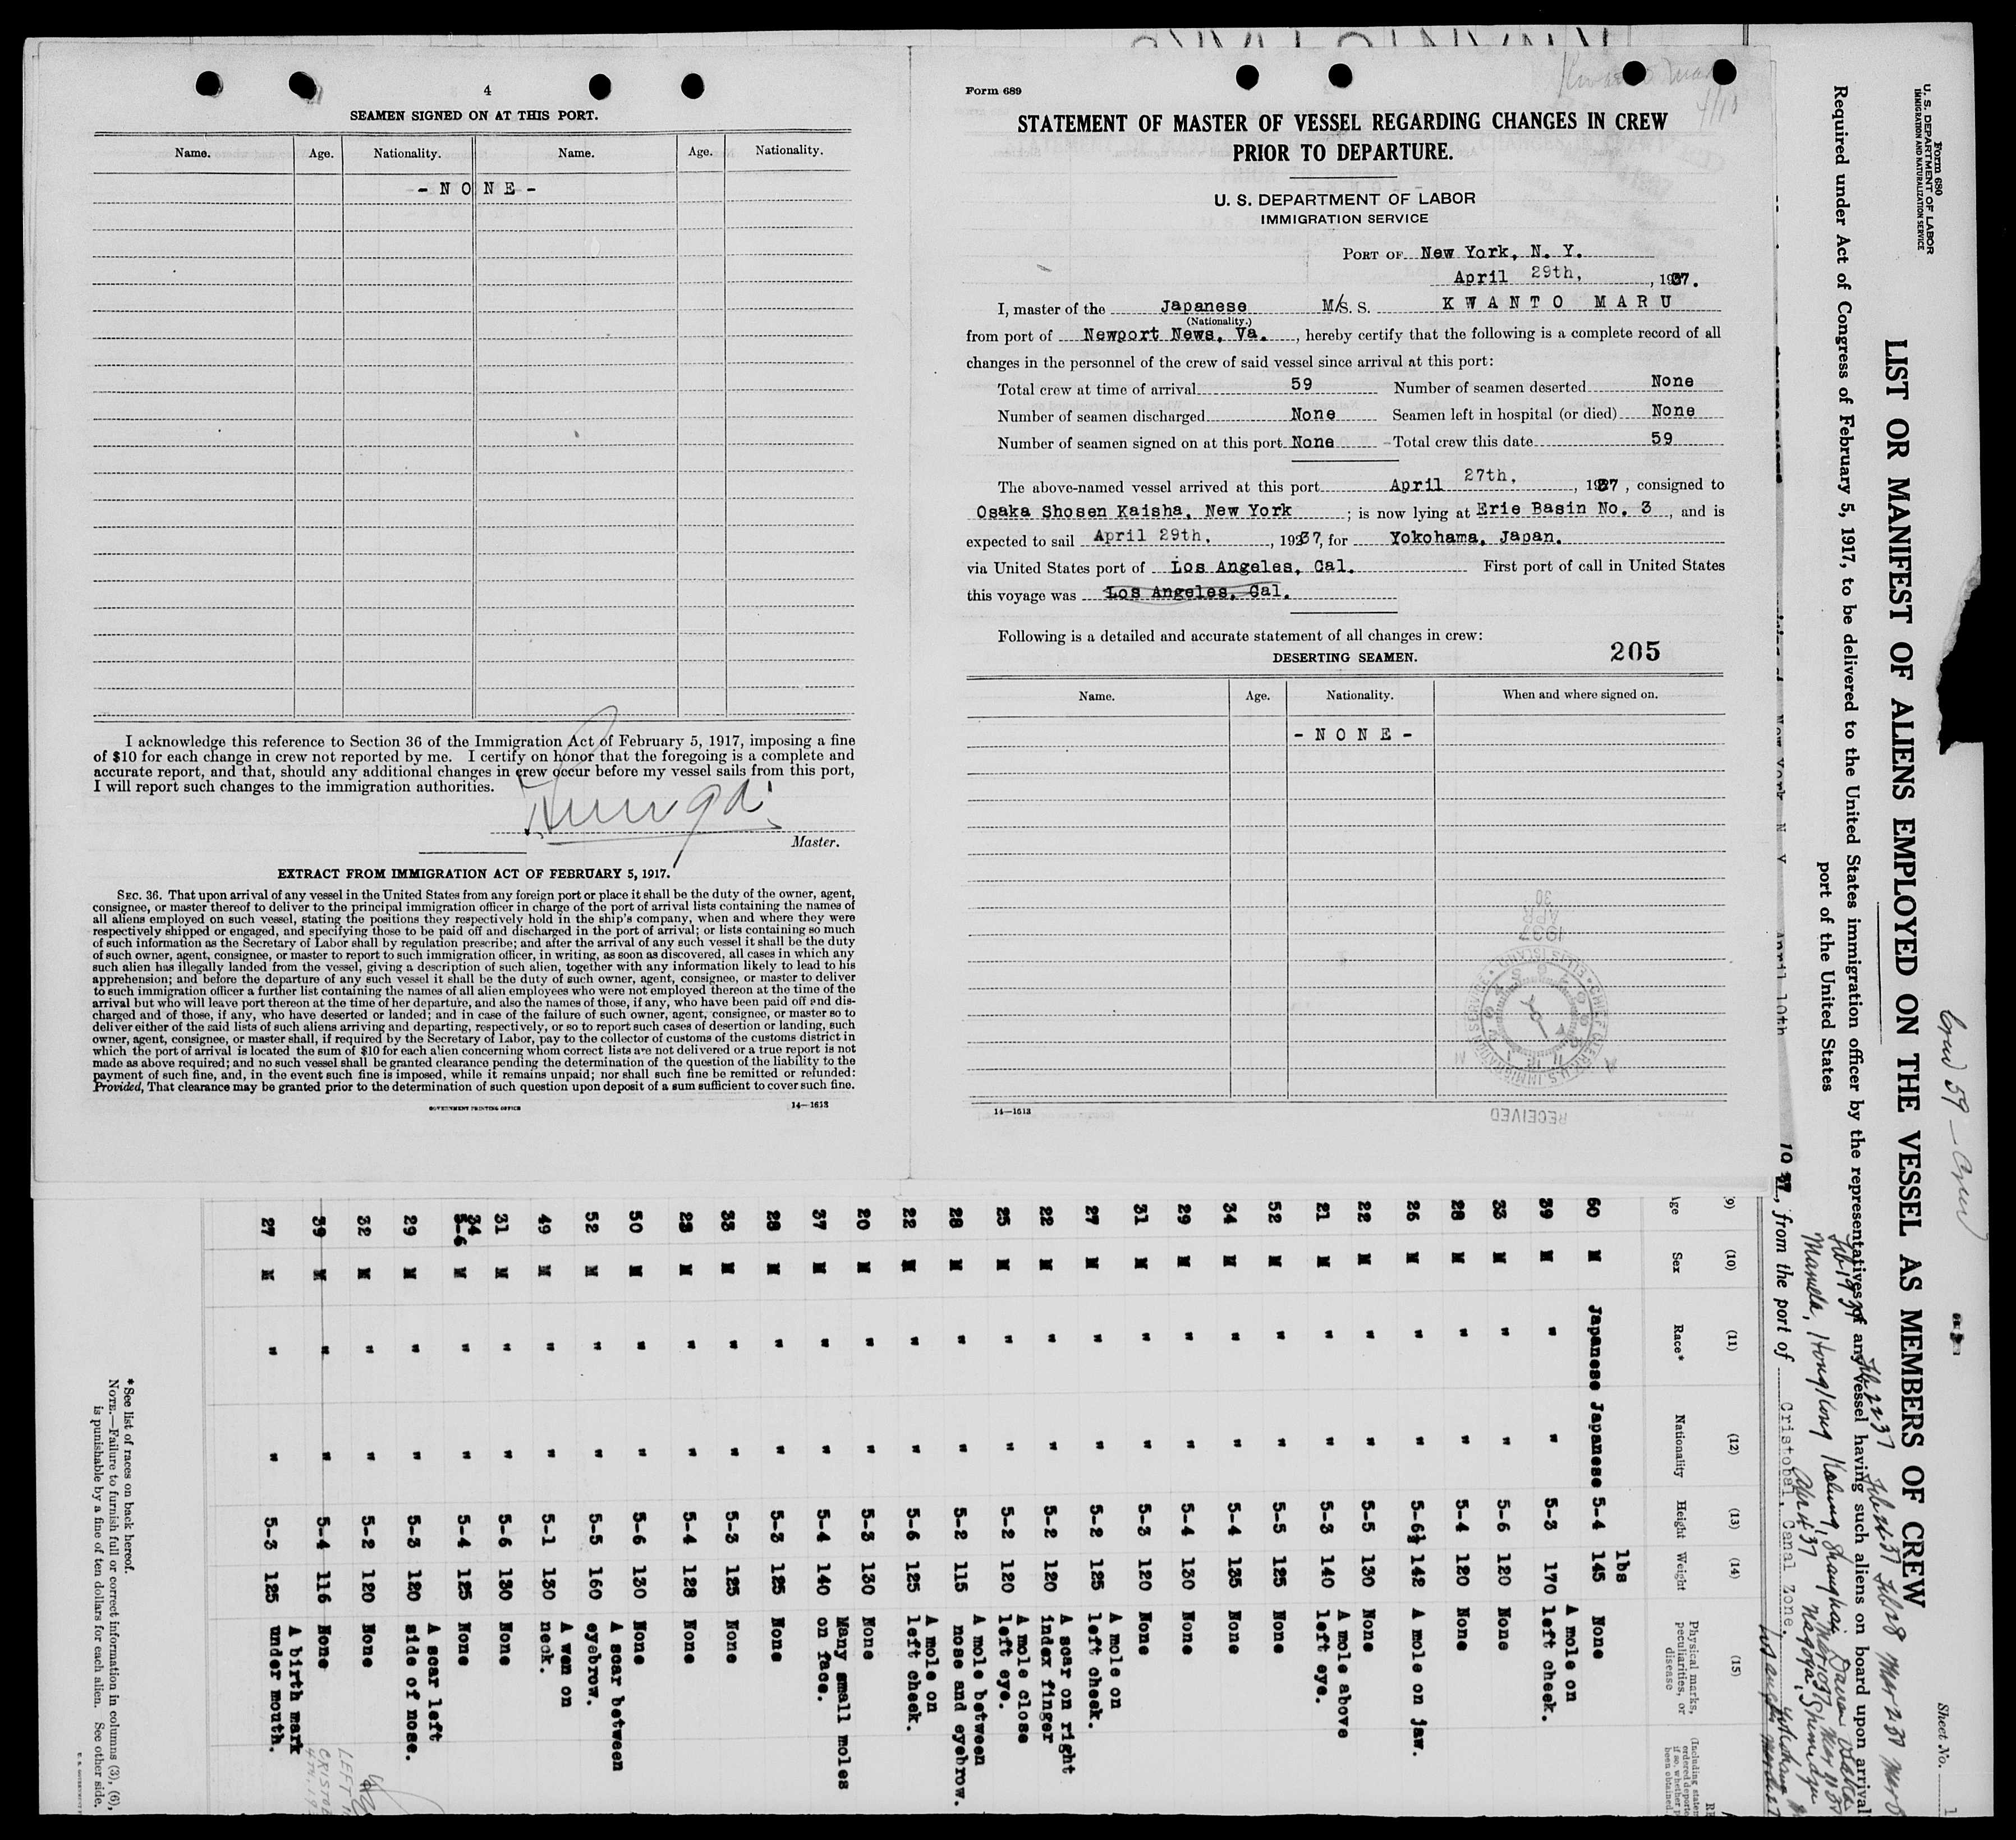 4
SEAMEN SIGNED ON AT THIS PORT.
Name. Age. Nationality. Name. Age. Nationality.
- N O N E -
I acknowledge this reference to Section 36 of the Immigration Act of February 5, 1917, imposing a fine
of $10 for each change in crew not reported by me. I certify on honor that the foregoing is a complete and
accurate report, and that, should any additional changes in crew occur before my vessel sails from this port,
I will report such changes to the immigration authorities.
Master.
EXTRACT FROM IMMIGRATION ACT OF FEBRUARY 5, 1917.
SEC. 36. That upon arrival of any vessel in the United States from any foreign port or place it shall be the duty of the owner, agent,
consignee, or master thereof to deliver to the principal immigration officer in charge of the port of arrival lists containing the names of
all aliens employed on such vessel, stating the positions they respectively hold in the ship's company, when and where they were
respectively shipped or engaged, and specifying those to be paid off and discharged in the port of arrival; or lists containing so much
of such information as the Secretary of Labor shall by regulation prescribe; and after the arrival of any such vessel it shall be the duty
of such owner, agent, consignee, or master to report to such immigration officer, in writing, as soon as discovered, all cases in which any
such alien has illegally landed from the vessel, giving a description of such alien, together with any information likely to lead to his
apprehension; and before the departure of any such vessel it shall be the duty of such owner, agent, consignee, or master to deliver
to such immigration officer a further list containing the names of all alien employees who were not employed thereon at the time of the
arrival but who will leave port thereon at the time of her departure, and also the names of those, if any, who have been paid off and dis-
charged and of those, if any, who have deserted or landed; and in case of the failure of such owner, agent, consignee, or master so to
deliver either of the said lists of such aliens arriving and departing, respectively, or so to report such cases of desertion or landing, such
owner, agent, consignee, or master shall, if required by the Secretary of Labor, pay to the collector of customs of the customs district in
which the port of arrival is located the sum of $10 for each alien concerning whom correct lists are not delivered or a true report is not
made as above required; and no such vessel shall be granted clearance pending the determination of the question of the liability to the
payment of such fine, and, in the event such fine is imposed, while it remains unpaid; nor shall such fine be remitted or refunded:
Provided, That clearance may be granted prior to the determination of such question upon deposit of a sum sufficient to cover such fine.
GOVERNMENT PRINTING OFFICE 14—1613
Form 689
Kwanto Maru
4/10
STATEMENT OF MASTER OF VESSEL REGARDING CHANGES IN CREW
PRIOR TO DEPARTURE.
U. S. DEPARTMENT OF LABOR
IMMIGRATION SERVICE
PORT OF New York, N. Y.
April 29th, , 1937.
I, master of the Japanese M/S. S. K W A N T O M A R U
(Nationality.)
from port of Newport News, Va. , hereby certify that the following is a complete record of all
changes in the personnel of the crew of said vessel since arrival at this port:
Total crew at time of arrival 59 Number of seamen deserted None
Number of seamen discharged None Seamen left in hospital (or died) None
Number of seamen signed on at this port None Total crew this date 59
The above-named vessel arrived at this port April 27th, , 1937 , consigned to
Osaka Shosen Kaisha, New York ; is now lying at Erie Basin No. 3 , and is
expected to sail April 29th, , 1937, for Yokohama, Japan.
via United States port of Los Angeles, Cal. First port of call in United States
this voyage was Los Angeles, Cal.
Following is a detailed and accurate statement of all changes in crew:
DESERTING SEAMEN. 205
Name. Age. Nationality. When and where signed on.
- N O N E -
1937
APR
30
RECEIVED
14—1613
Form 680
U. S. DEPARTMENT OF LABOR
IMMIGRATION AND NATURALIZATION SERVICE
Crew 59 – Crew
Sheet No. 1
LIST OR MANIFEST OF ALIENS EMPLOYED ON THE VESSEL AS MEMBERS OF CREW
Required under Act of Congress of February 5, 1917, to be delivered to the United States immigration officer by the representatives of any vessel having such aliens on board upon arrival
port of the United States
Feb 19 37 Feb 22 37 Feb 26 37 Feb 28
Manila, Hong Kong Keelung, Shanghai
Nagoya, Shimidzu
New York N Y April 10th 1937, from the port of Cristobal, Canal Zone,
(9) (10) (11) (12) (13) (14) (15)
Age Sex Race* Nationality Height Weight Physical marks, peculiarities, or disease
lbs
60 M Japanese Japanese 5-4 145 None
39 M " " 5-3 170 A mole on left cheek.
33 M " " 5-6 120 None
28 M " " 5-4 120 None
26 M " " 5-6½ 142 A mole on jaw.
22 M " " 5-5 130 None
21 M " " 5-3 140 A mole above left eye.
52 M " " 5-5 125 None
34 M " " 5-4 135 None
29 M " " 5-4 130 None
31 M " " 5-3 120 None
27 M " " 5-2 125 A mole on left cheek.
22 M " " 5-2 120 A scar on right index finger
25 M " " 5-2 120 A mole close left eye.
28 M " " 5-2 115 A mole between nose and eyebrow.
22 M " " 5-6 125 A mole on left cheek.
20 M " " 5-3 130 None
37 M " " 5-4 140 Many small moles on face.
28 M " " 5-3 125 None
33 M " " 5-3 125 None
28 M " " 5-4 128 None
50 M " " 5-6 130 None
52 M " " 5-5 160 A scar between eyebrow.
49 M " " 5-1 130 A wen on neck.
31 M " " 5-6 130 None
34 M " " 5-4 125 None
29 M " " 5-3 120 A scar left side of nose.
32 M " " 5-2 120 None
39 M " " 5-4 116 None
27 M " " 5-3 125 A birth mark under mouth.
LEFT
* See list of races on back hereof.
NOTE.—Failure to furnish full or correct information in columns (3), (6),
is punishable by a fine of ten dollars for each alien. See other side.